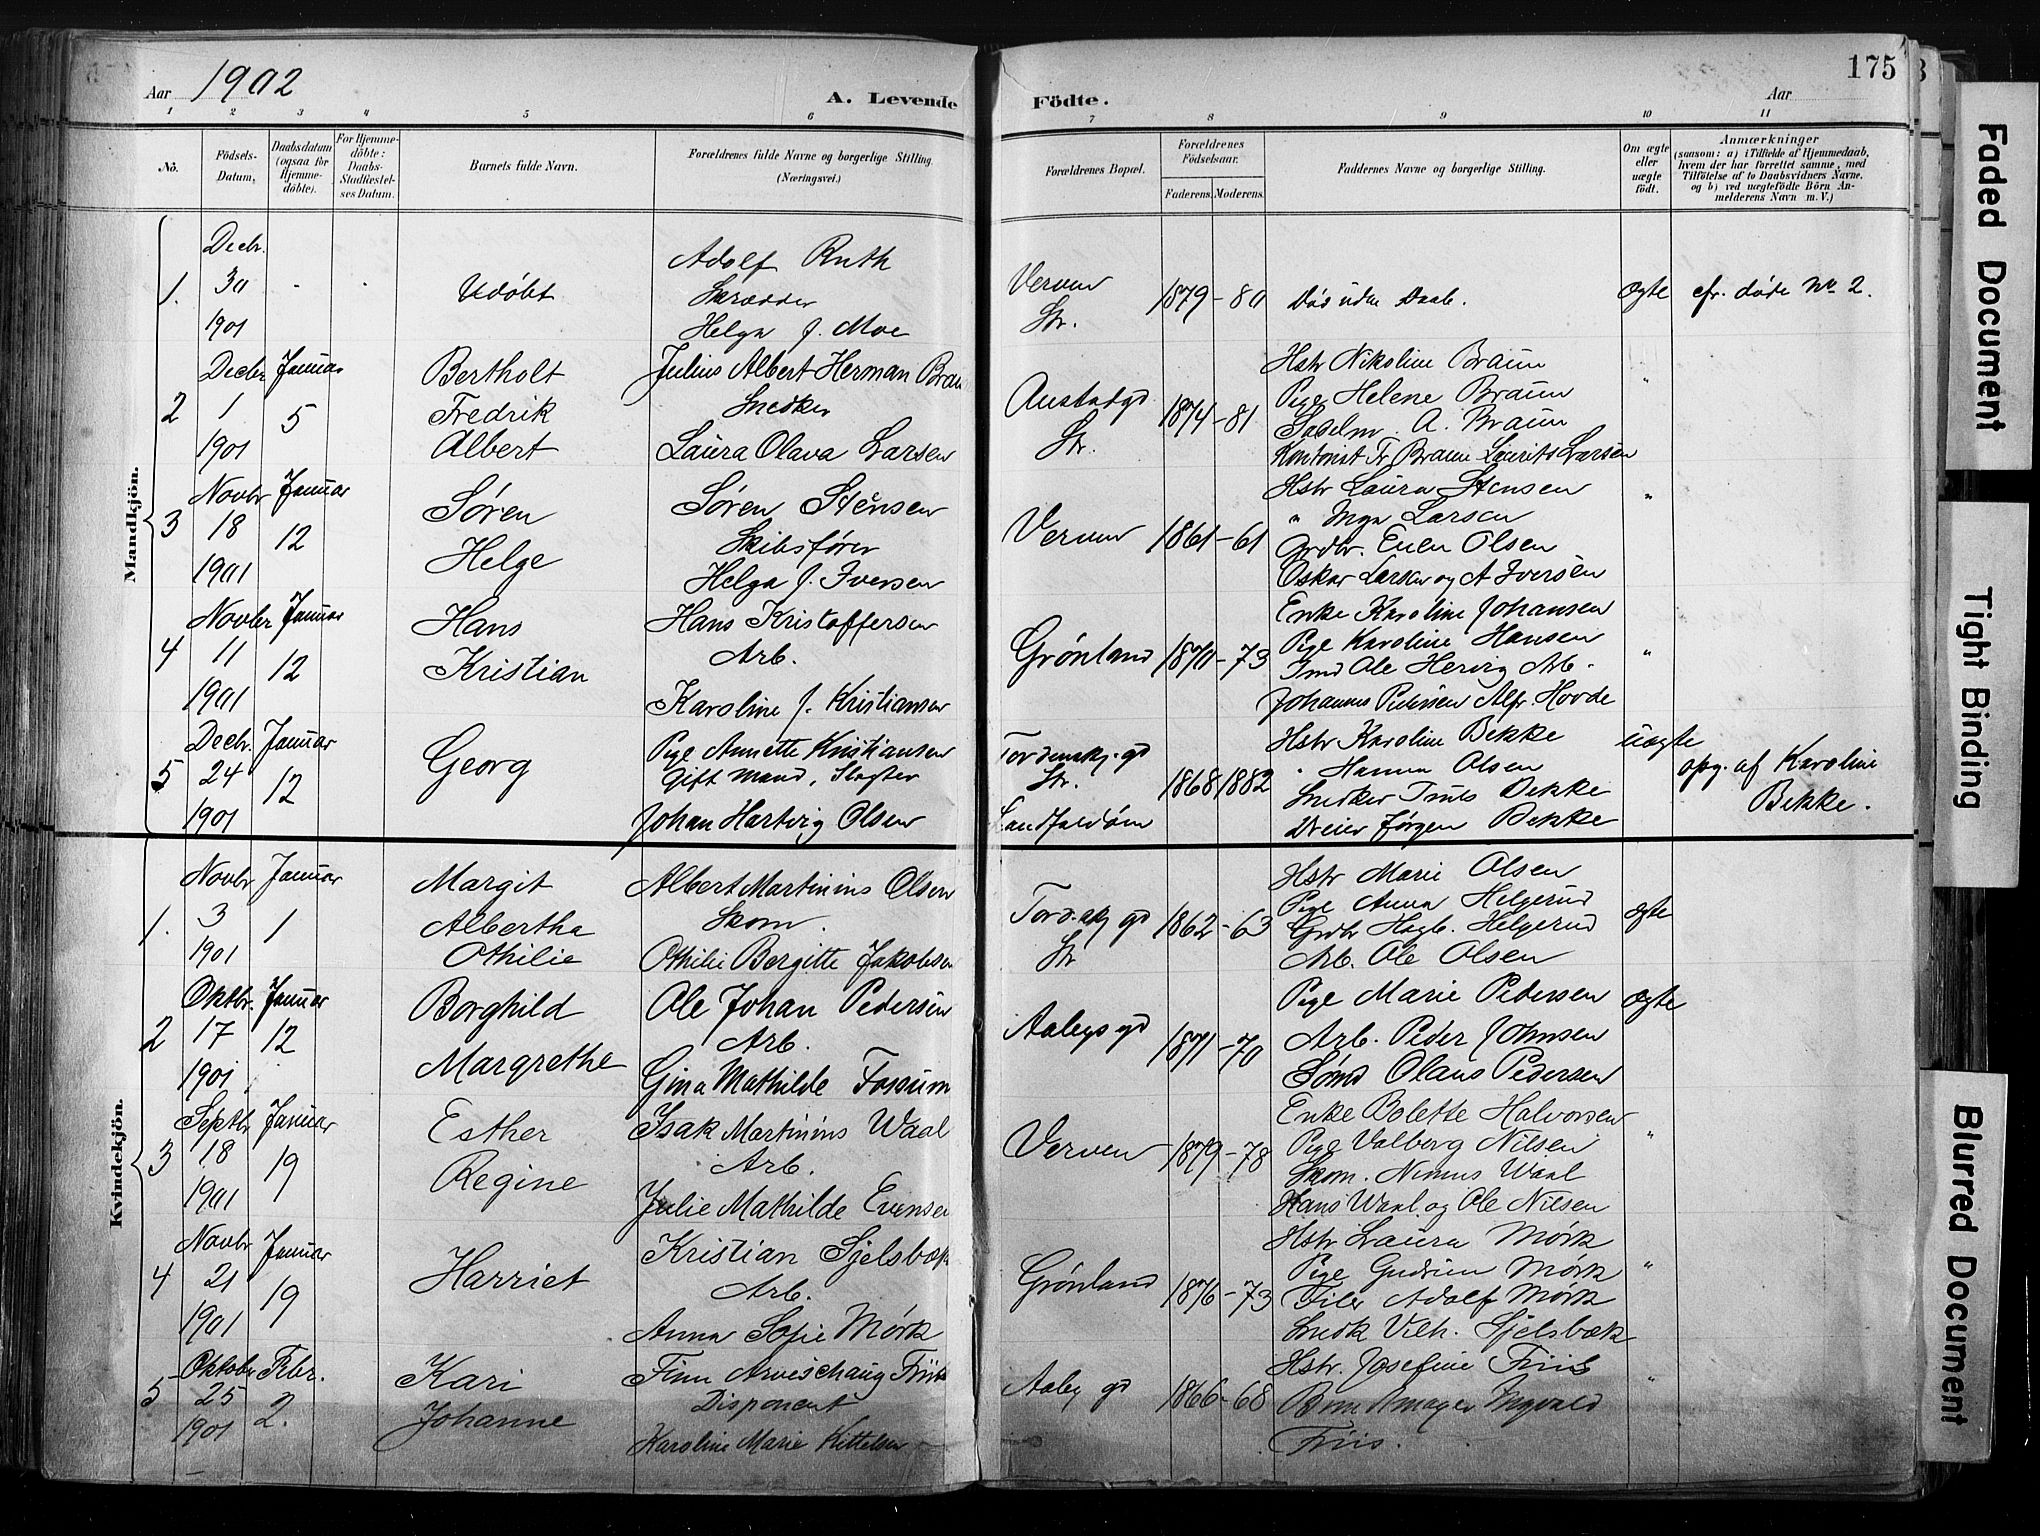 175
Aar 1902
A. Levende Födte.
Aar
1 2 3 4 5 6 7 8 9 10 11
No.
Födsels-Datum.
Daabsdatum (ogsaa för Hjemmedöbte).
For Hjemmedöbte: Daabs-Stadfæstelses Datum.
Barnets fulde Navn.
Forældrenes fulde Navne og borgerlige Stilling. (Næringsvei.)
Forældrenes Bopæl.
Forældrenes Födselsaar.
Faderens. Moderens.
Faddernes Navne og borgerlige Stilling.
Om ægte eller uægte födt.
Anmærkninger
(saasom: a) i Tilfælde af Hjemmedaab,
hvem der har forrettet samme, med
Tilföielse af to Daabsvidners Navne.
og b) ved uægtefödte Börn An-
melderens Navn m. V.)
Mandkjön.
1. Decbr. 30 1901
Udøbt
Adolf Ruth
Skrædder
Helga f. Moe
Verven Str.
1879-80
Død uden Daab.
ægte
cfr. døde No 2.
2 Decbr 1 1901
Januar 5
Bertholt
Fredrik
Albert
Julius Albert Herman Brau
Snedker
Laura Olava Larsen
Str.
1874-81
Hstr Nikoline Braun
Pige Helene Braun
Sadelm. A. Braun
Kontorist Fr Braun Laurits Larsen
"
3 Novbr 18 1901
Januar 12
Søren
Helge
Søren Stensen
Skibsfører
Helga f. Iversen
Verven
1861-61
Hstr Laura Stensen
" Inga Larsen
Grdbr. Even Olsen
Oskar Larsen og A Iversen
"
4 Novbr 11 1901
Januar 12
Hans
Kristian
Hans Kristoffersen
Arb.
Karoline f. Kristiansen
Grønland
1870-73
Enke Karoline Johansen
Pige Karoline Hansen
Ole Hervig Arb.
Johannes Pedersen Alfr. Hovde
"
5 Decbr. 24 1901
Januar 12
Georg
Pige Annette Kristiansen
Gift Mand, Slagter
Johan Hartvig Olsen
Tordenskj. gd
Str.
1868 1882
Hstr Karoline Bekke
" Hanna Olsen
Snedker Bekke
Dreier Jørgen Bekke
uægte
opg. af Karoline
Bekke.
Kvindekjön.
1. Novbr 3 1901
Januar 1
Margit
Albertha
Othilie
Albert Martinius Olsen
Skom.
Othilie Bergitte Jakobsen
Tord.skj gd
Str
1862-63
Hstr Marie Olsen
Pige Anna Helgerud
Grdbr Hagb. Helgerud
Arb. Ole Olsen
ægte
2 Oktbr. 17 1901
Januar 12
Borghild
Margrethe
Ole Johan Pedersen
Arb.
Gina Mathilde Fossum
Aabygs gd
1871-70
Pige Marie Pedersen
Arb. Peder Johnsen
Sømd Olaus Pedersen
ægte
3 Septbr 18 1901
Januar 19
Esther
Regine
Isak Martinius Waal
Arb.
Julie Mathilde Evensen
Verven
1879-78
Enke Bolette Halvorsen
Pige Valborg Nilsen
Skom. Waal
Hans Waal og Ole Nilsen
"
4 Novbr 21 1901
Januar 19
Harriet
Kristian Sjelsbæk
Arb.
Anna Sofie Mørk
Grønland
1876-73
Hstr Laura Mørk
Pige Gudrun Mørk
Filer Adolf Mørk
Snedk Vilh. Sjelsbæk
"
5 Oktober 25 1901
Febr. 2.
Kari
Johanne
Finn Friis
Disponent
Karoline Marie Kittelsen
Aaby gd
1866-68
Hstr. Josefine Friis
Ingvald
Friis.
"
Faded Document
Tight Binding
Blurred Document